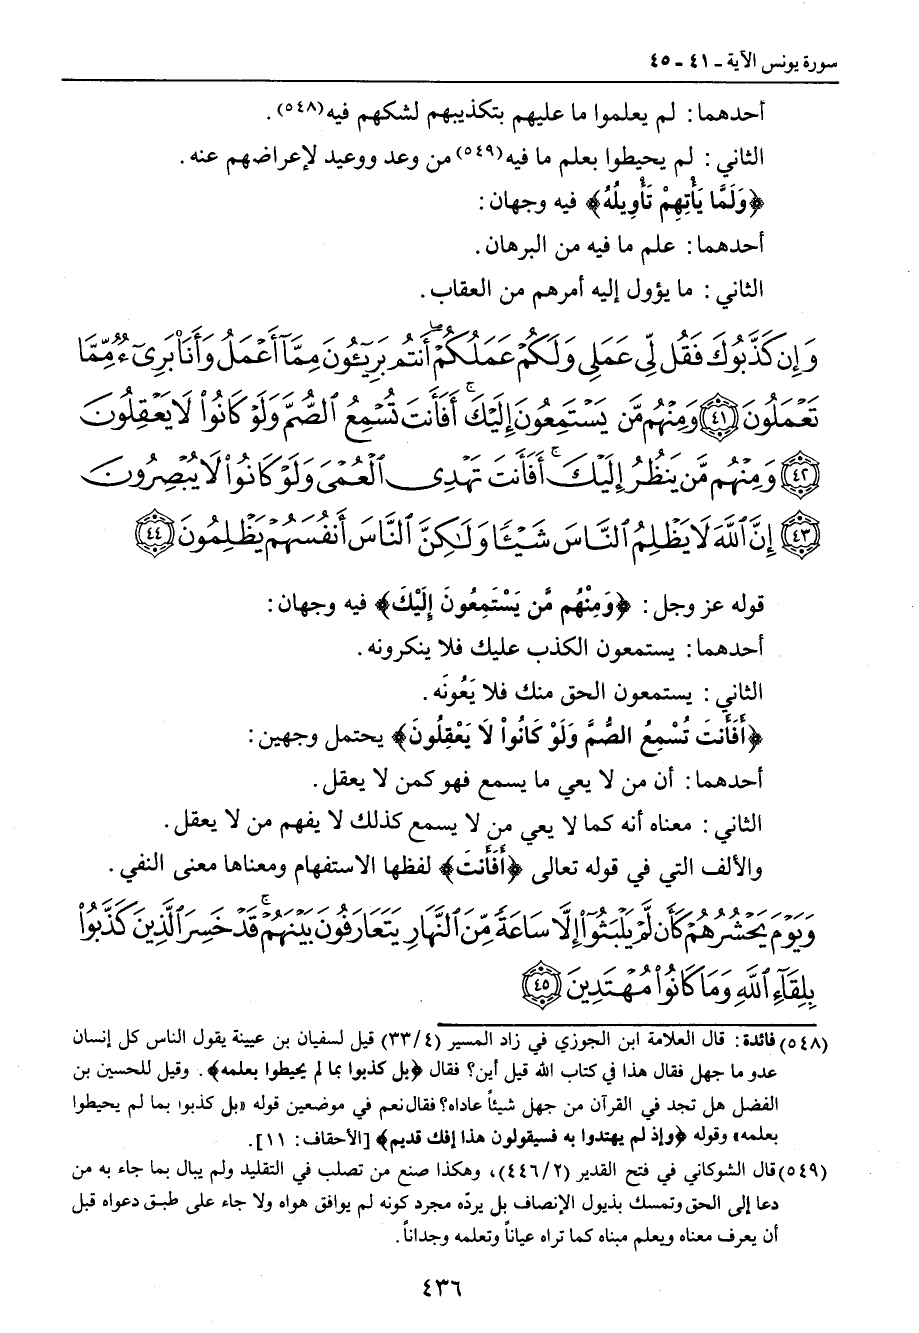 سورة يونس الآية ـ ٤١ ـ ٤٥
أحدهما: لم يعلموا ما عليهم بتكذيبهم لشكهم فيه(٥٤٨).
الثاني: لم يحيطوا بعلم ما فيه(٥٤٩) من وعد ووعيد لإعراضهم عنه.
﴿وَلَمَّا يَأْتِهِمْ تَأْوِيلُهُ﴾ فيه وجهان:
أحدهما: علم ما فيه من البرهان.
الثاني: ما يؤول إليه أمرهم من العقاب.
وَإِن كَذَّبُوكَ فَقُل لِّي عَمَلِي وَلَكُمْ عَمَلُكُمْ ۖ أَنتُم بَرِيٓـُٔونَ مِمَّآ أَعْمَلُ وَأَنَا۠ بَرِىٓءٌ مِّمَّا
تَعْمَلُونَ ٤١ وَمِنْهُم مَّن يَسْتَمِعُونَ إِلَيْكَ ۚ أَفَأَنتَ تُسْمِعُ ٱلصُّمَّ وَلَوْ كَانُوا۟ لَا يَعْقِلُونَ
٤٢ وَمِنْهُم مَّن يَنظُرُ إِلَيْكَ ۚ أَفَأَنتَ تَهْدِى ٱلْعُمْىَ وَلَوْ كَانُوا۟ لَا يُبْصِرُونَ
٤٣ إِنَّ ٱللَّهَ لَا يَظْلِمُ ٱلنَّاسَ شَيْـًٔا وَلَٰكِنَّ ٱلنَّاسَ أَنفُسَهُمْ يَظْلِمُونَ ٤٤
قوله عز وجل: ﴿وَمِنْهُم مَّن يَسْتَمِعُونَ إِلَيْكَ﴾ فيه وجهان:
أحدهما: يستمعون الكذب عليك فلا ينكرونه.
الثاني: يستمعون الحق منك فلا يَعُونَه.
﴿أَفَأَنتَ تُسْمِعُ الصُّمَّ وَلَوْ كَانُواْ لَا يَعْقِلُونَ﴾ يحتمل وجهين:
أحدهما: أن من لا يعي ما يسمع فهو كمن لا يعقل.
الثاني: معناه أنه كما لا يعي من لا يسمع كذلك لا يفهم من لا يعقل.
والألف التي في قوله تعالى ﴿أَفَأَنتَ﴾ لفظها الاستفهام ومعناها معنى النفي.
وَيَوْمَ يَحْشُرُهُمْ كَأَن لَّمْ يَلْبَثُوٓا۟ إِلَّا سَاعَةً مِّنَ ٱلنَّهَارِ يَتَعَارَفُونَ بَيْنَهُمْ ۚ قَدْ خَسِرَ ٱلَّذِينَ كَذَّبُوا۟
بِلِقَآءِ ٱللَّهِ وَمَا كَانُوا۟ مُهْتَدِينَ ٤٥
(٥٤٨) فائدة: قال العلامة ابن الجوزي في زاد المسير (٣٣/٤) قيل لسفيان بن عيينة يقول الناس كل إنسان
عدو ما جهل فقال هذا في كتاب الله قيل أين؟ فقال ﴿بل كذبوا بما لم يحيطوا بعلمه﴾. وقيل للحسين بن
الفضل هل تجد في القرآن من جهل شيئاً عاداه؟ فقال نعم في موضعين قوله «بل كذبوا بما لم يحيطوا
بعلمه» وقوله ﴿وإذ لم يهتدوا به فسيقولون هذا إفك قديم﴾ [الأحقاف: ١١].
(٥٤٩) قال الشوكاني في فتح القدير (٤٤٦/٢)، وهكذا صنع من تصلب في التقليد ولم يبال بما جاء به من
دعا إلى الحق وتمسك بذيول الإنصاف بل يردّه مجرد كونه لم يوافق هواه ولا جاء على طبق دعواه قبل
أن يعرف معناه ويعلم مبناه كما تراه عياناً وتعلمه وجداناً.
٤٣٦